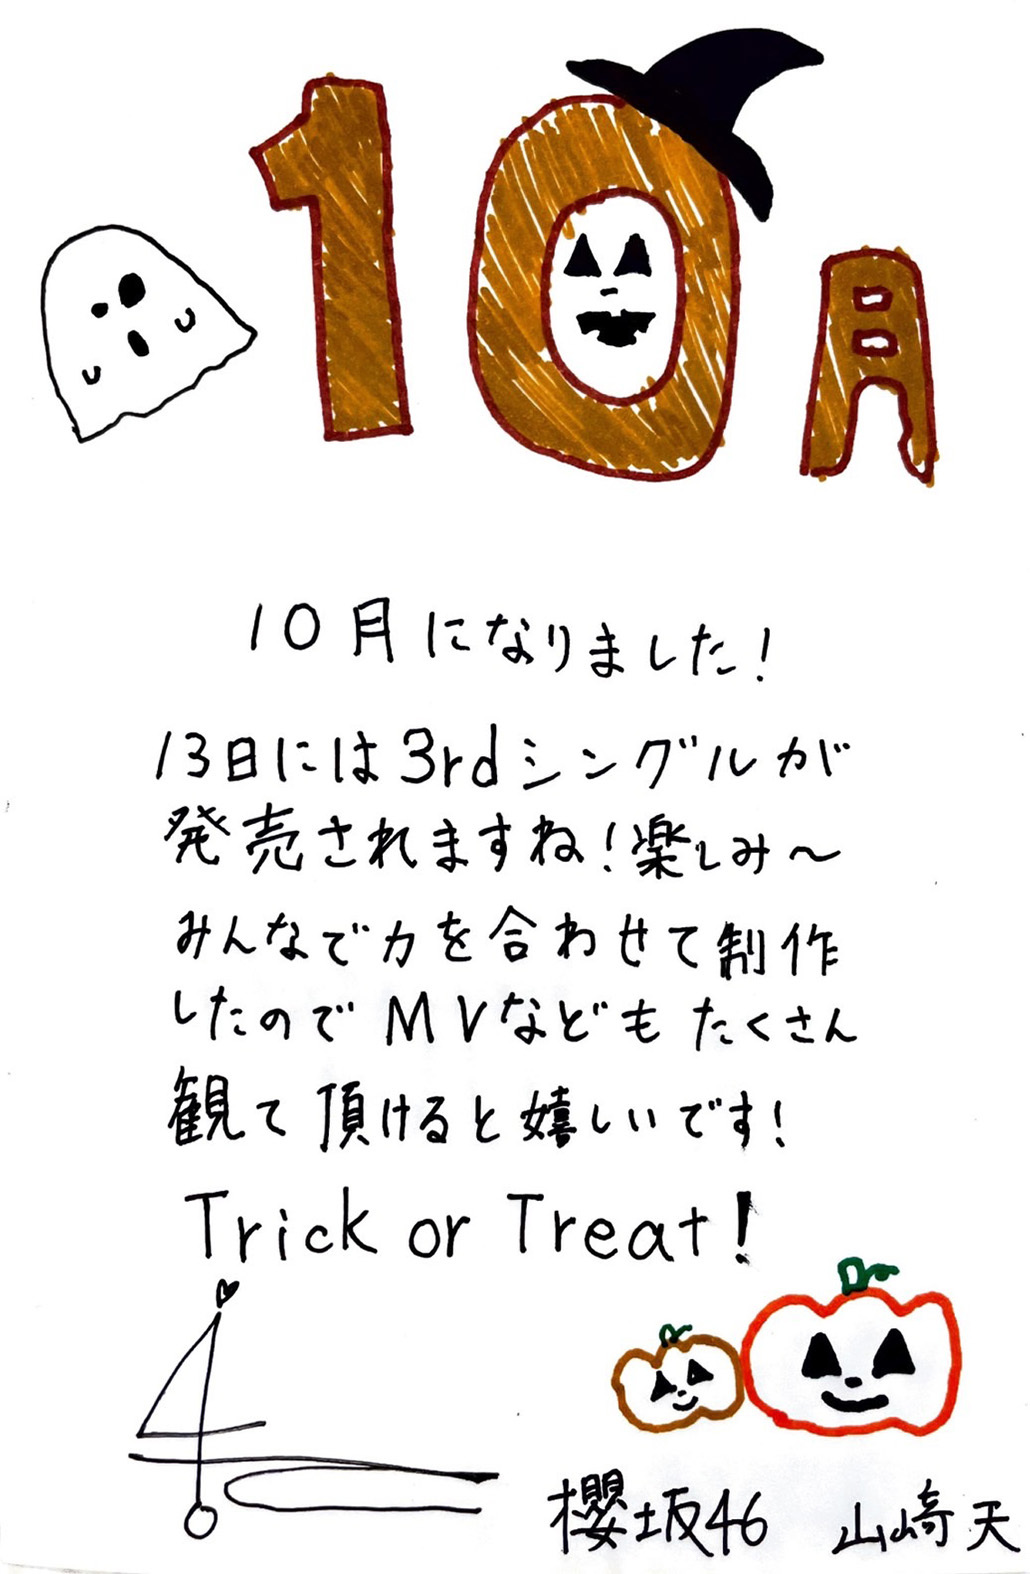 10月
10月になりました!
13日には3rdシングルが
発売されますね!楽しみ〜
みんなで力を合わせて制作
したのでMVなどもたくさん
観て頂けると嬉しいです!
Trick or Treat!
櫻坂46 山﨑天